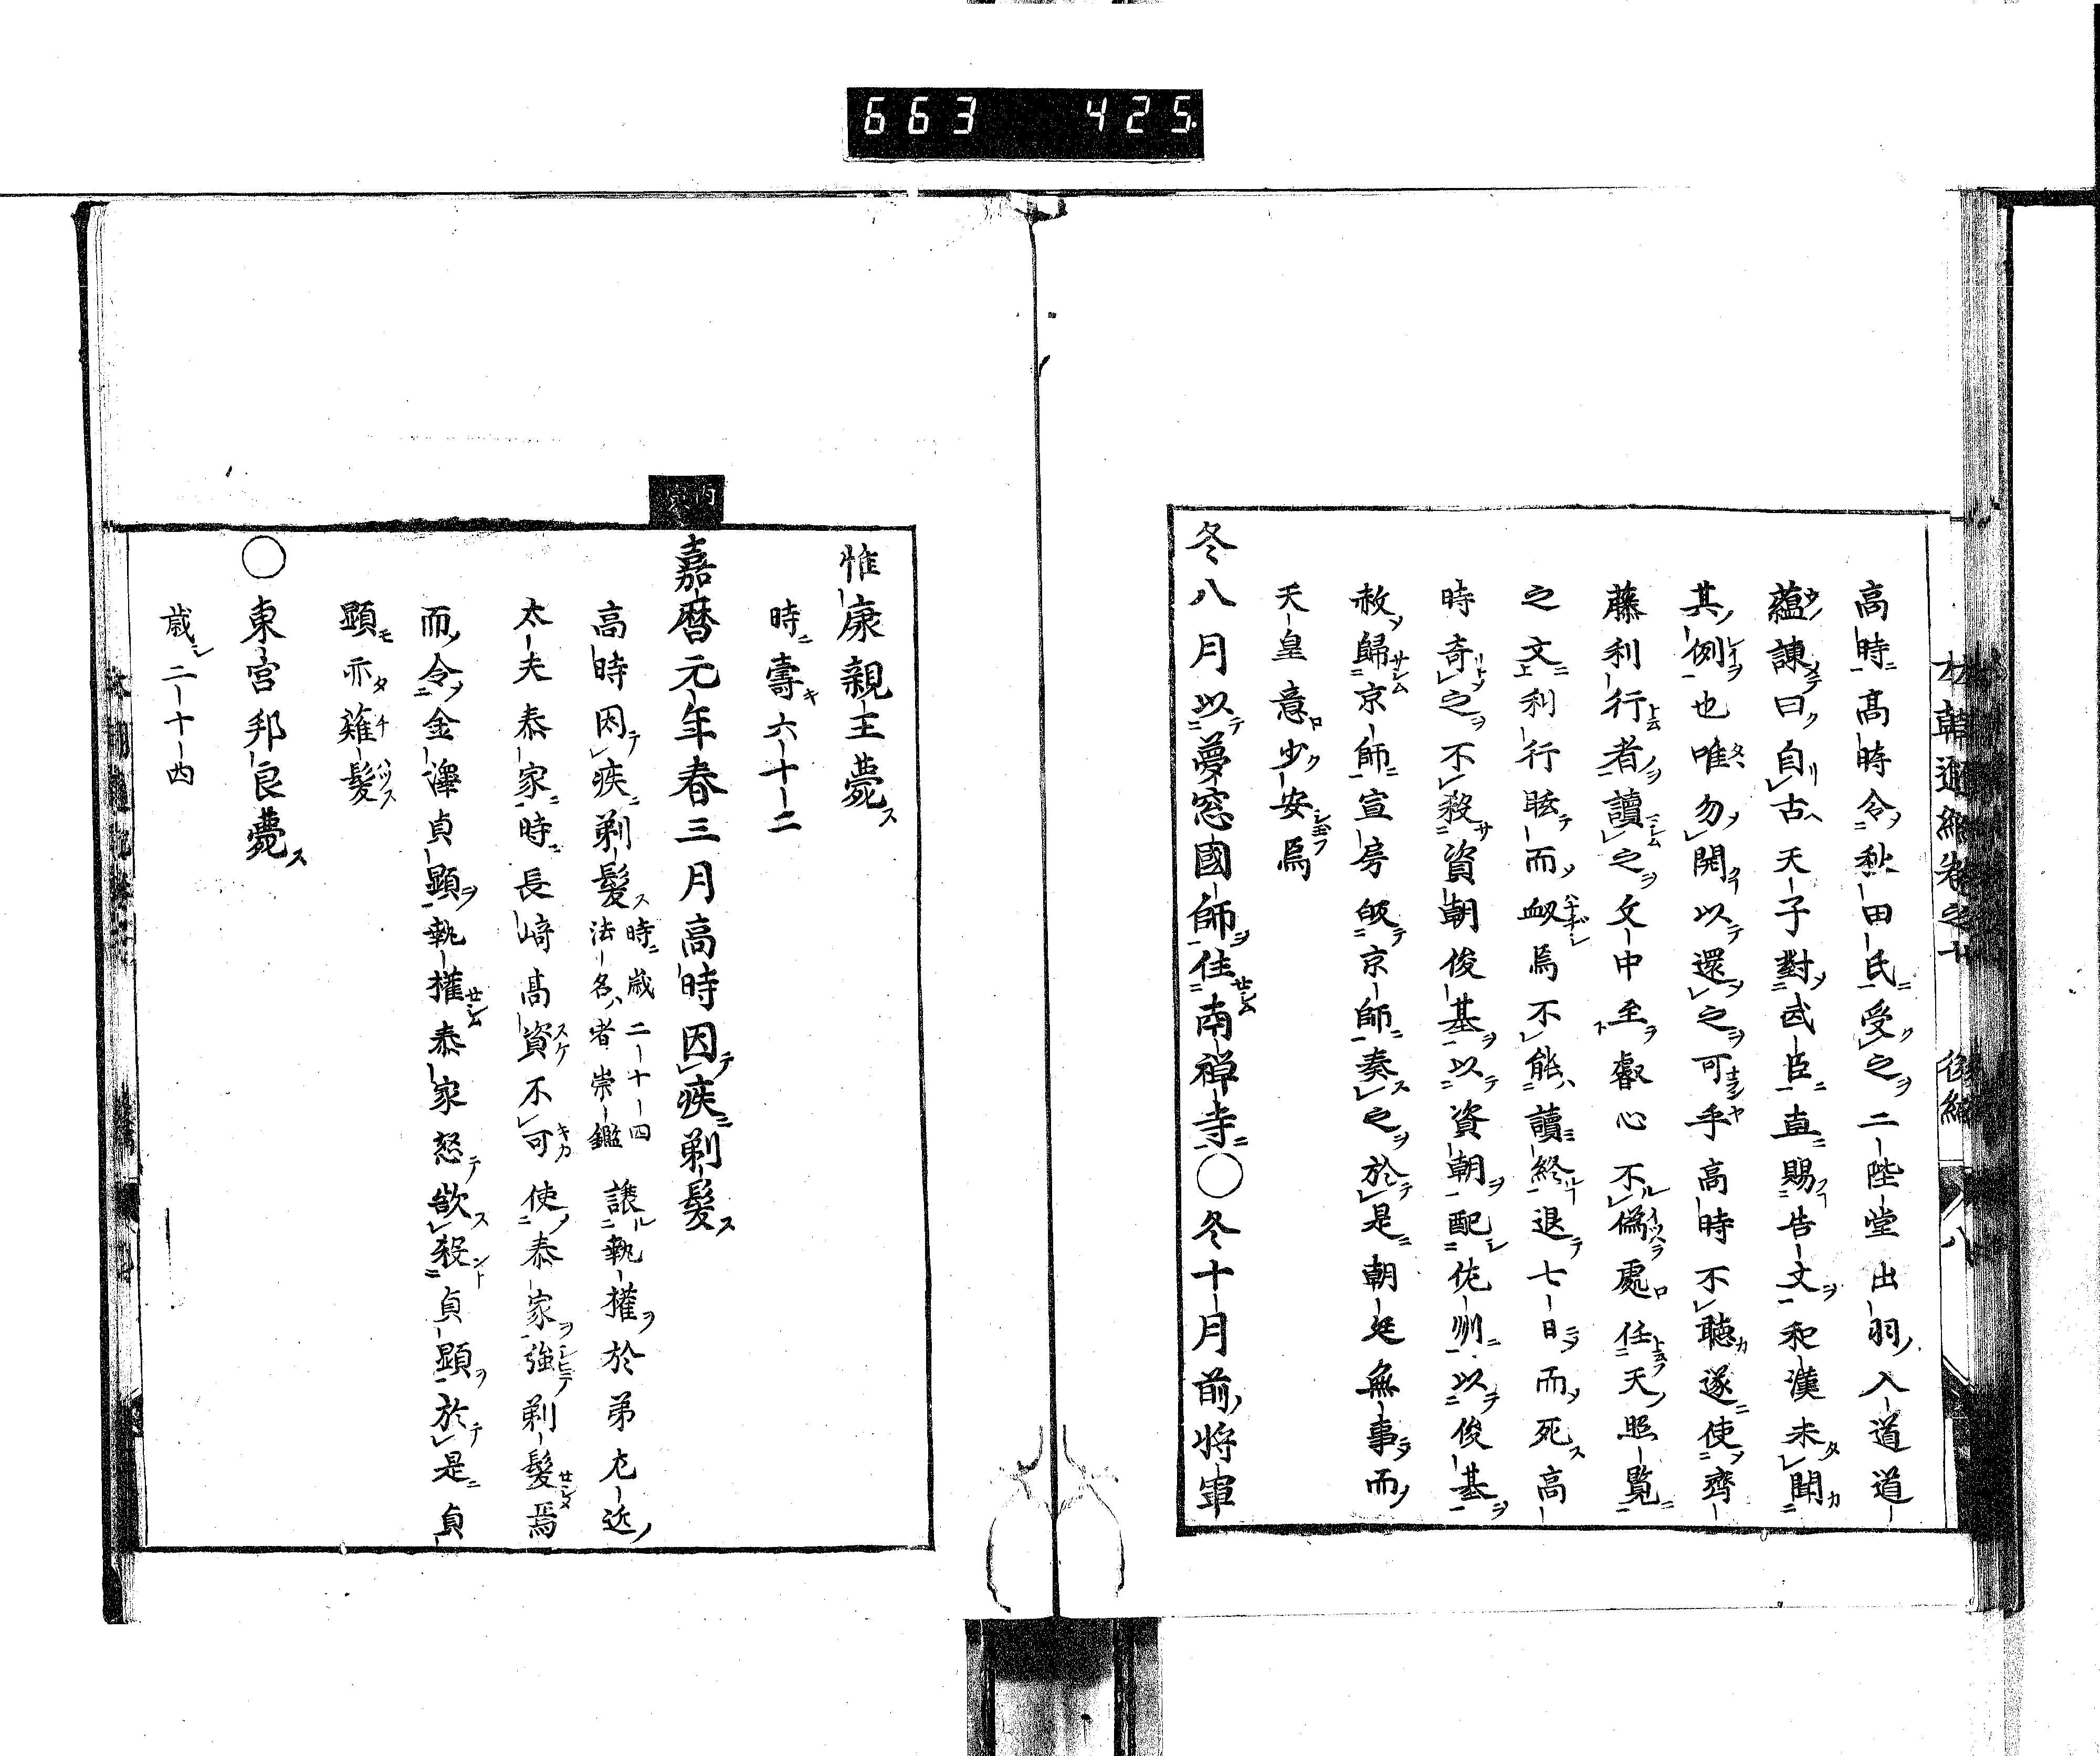 663 425
高時高時令秋田氏受之二陛堂出羽入道道
蘊諌曰自古天子對武臣直賜告文和漢未聞
其例也唯勿開以還之可乎高時不聽遂使齊
藤利行者讀之文中至叡心不偽處任天照覧
之文利行眩而衂焉不能讀終退七日而死高
時奇之不殺資朝俊基以資朝配佐州以俊基
赦歸京師宣房皈京師奏之於是朝廷無事而
天皇意少安焉
冬八月以夢窓國師住南禅寺〇冬十月前将軍
惟康親王薨
時壽六十二
嘉暦元年春三月高時因疾剃髮
高時因疾剃髮時歳二十四法名者崇鑑譲執權於弟左近
太夫泰家時長﨑高資不可使泰家強剃髮焉
而令金澤貞顕執權泰家怒欲殺貞顕於是貞
顕亦薙髮
〇東宮邦良薨
歳二十四